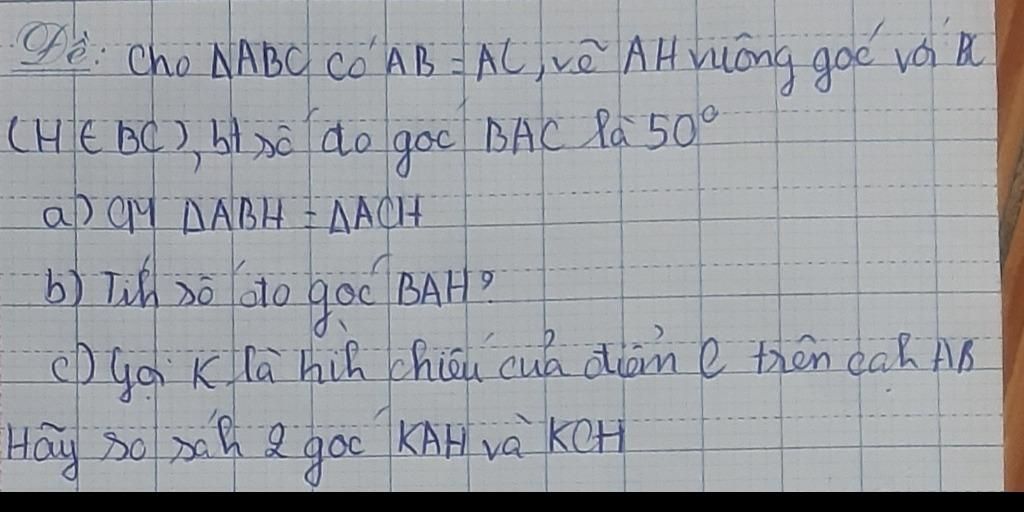 Đề: Cho ΔABC có AB = AC, vẽ AH vuông góc với BC
(H ∈ BC), bt số đo góc BAC là 50°
a) CM ΔABH = ΔACH
b) Tíh số đo góc BAH?
c) Gọi K là hìh chiếu của điểm C trên cạh AB
Hãy so sáh 2 góc KAH và KCH